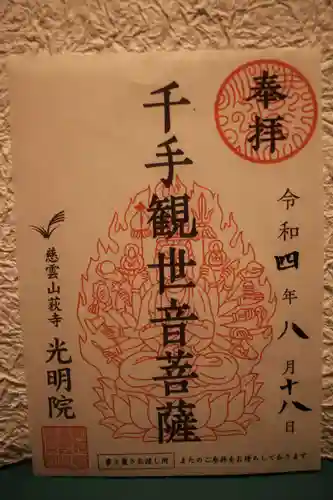 奉拝
令和四年八月十八日
千手観世音菩薩
慈雲山萩寺 光明院
夢と蘭りお渡し所 またのご参拝をお待ちしております。